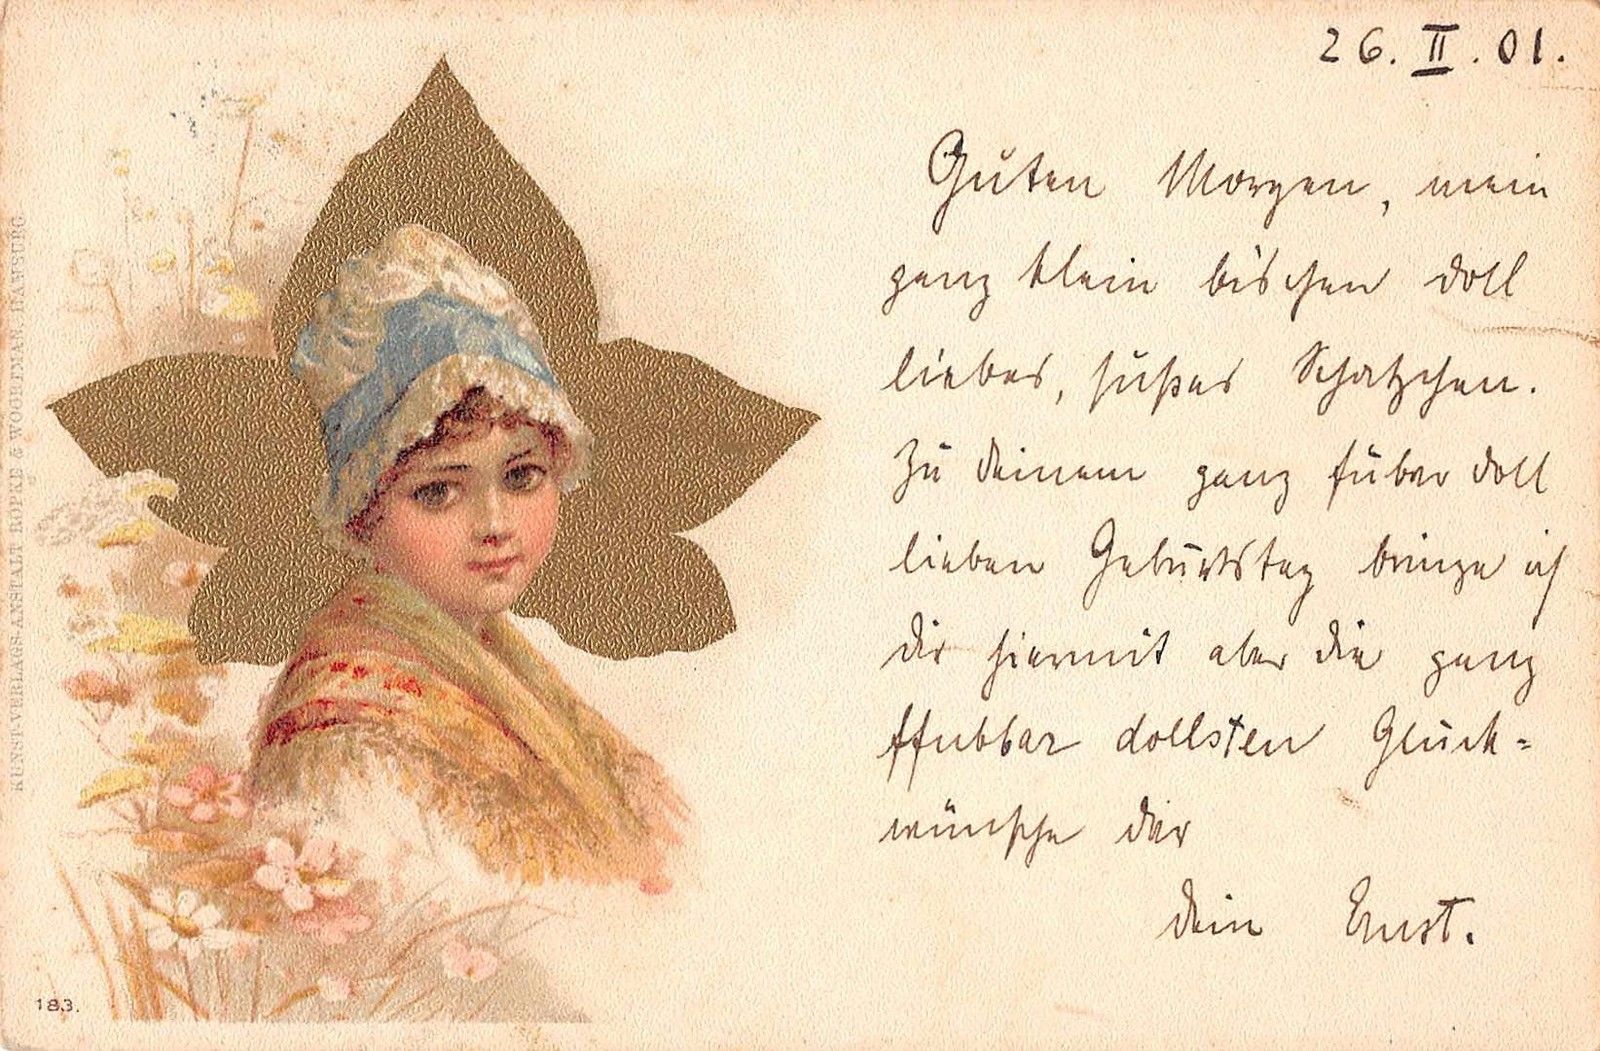 26. II. 01.
Guten Morgen, mein
ganz klein bischen doll
liebes, süßes Schatzchen.
Zu deinem ganz fubar doll
lieben Geburtstag bringe ich
dir hiermit aber die ganz
ffubbar dollsten Glück=
wünsche dar
dein Ernst.
KUNST-VERLAGS-ANSTALT ROPKE & WOORTMAN, HAMBURG
183.